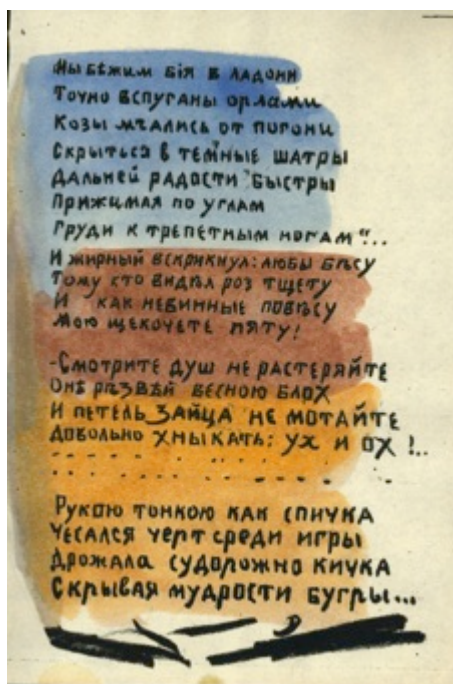 Мы бѣжим бія в ладони
Точно вспуганы орлами
Козы мчались от погони
Скрыться в темные шатры
Дальней радости быстры
Прижимая по углам
Груди к трепетным ногам"...
И жирный вскрикнул: любы бѣсу
Тому кто видѣл роз тщету
И как невинные повѣсу
Мою щекочете пяту!
-Смотрите душ не растеряйте
Онѣ рѣзвѣй весною блох
И петель зайца не мотайте
Довольно хныкать: ух и ох!..
Рукою тонкою как спичка
Чесался черт среди игры
Дрожала судорожно кичка
Скрывая мудрости бугры...